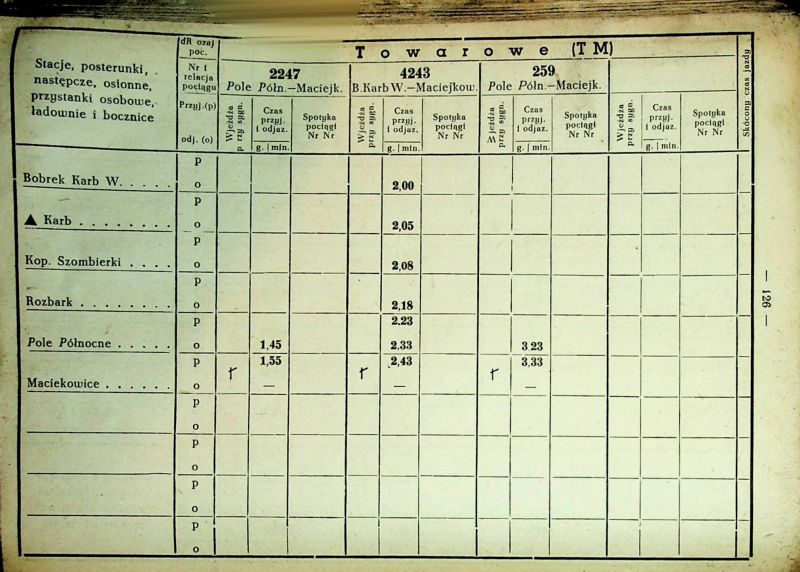 Stacje, posterunki,
następcze, osłonne,
przystanki osobowe,
ładownie i bocznice
dR ozaj
poc.
Nr i
relacja
pociągu
Przyj.(p)
odj. (o)
Towarowe (TM)
2247
Pole Półn.—Maciejk.
4243
B.Karb W.—Maciejkow.
259
Pole Półn.—Maciejk.
Wjeżdża
przy sygn.
Czas
przyj.
i odjaz.
g. | min.
Spotyka
pociągi
Nr Nr
Wjeżdża
przy sygn.
Czas
przyj.
i odjaz.
g. | min.
Spotyka
pociągi
Nr Nr
Wjeżdża
przy sygn.
Czas
przyj.
i odjaz.
g. | min.
Spotyka
pociągi
Nr Nr
Wjeżdża
przy sygn.
Czas
przyj.
i odjaz.
g. | min.
Spotyka
pociągi
Nr Nr
Skócony czas jazdy
p
Bobrek Karb W. . . . . o 2,00
p
▲ Karb . . . . . . . . o 2,05
p
Kop. Szombierki . . . . o 2,08
p
Rozbark . . . . . . . . o 2,18
p 2.23
Pole Północne . . . . . o 1,45 2,33 3 23
p 1,55 2,43 3,33
Maciekowice . . . . . . o — — —
p
o
p
o
p
o
p
o
— 126 —